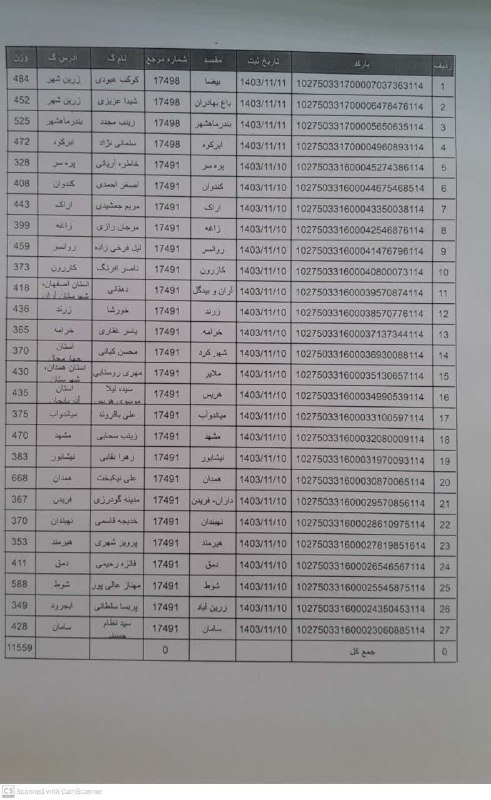 ردیف بارکد تاریخ ثبت مقصد شماره مرجع نام گ آدرس گ وزن
1 102750331700007037363114 1403/11/11 بیضا 17498 کوکب عبودی زرین شهر 484
2 102750331700006478476114 1403/11/11 باغ بهادران 17498 شیدا عزیزی زرین شهر 452
3 102750331700005650635114 1403/11/11 بندرماهشهر 17498 زینب مجدد بندرماهشهر 525
4 102750331700004960893114 1403/11/11 ابرکوه 17498 سلمانی نژاد ابرکوه 472
5 102750331600045274386114 1403/11/10 پره سر 17491 خاطره آریانی پره سر 328
6 102750331600044675468514 1403/11/10 کندوان 17491 اصغر احمدی کندوان 408
7 102750331600043350038114 1403/11/10 اراک 17491 مریم جمشیدی اراک 443
8 102750331600042546876114 1403/11/10 زاغه 17491 مرجان رازی زاغه 399
9 102750331600041476796114 1403/11/10 روانسر 17491 لیل فرخی زاده روانسر 459
10 102750331600040800073114 1403/11/10 کازرون 17491 ناصر افرنگ کازرون 373
11 102750331600039570874114 1403/11/10 آران و بیدگل 17491 دهقانی استان اصفهان، شهرستان آران 418
12 102750331600038570776114 1403/11/10 زرند 17491 خورشا زرند 436
13 102750331600037137344114 1403/11/10 خرامه 17491 یاسر غفاری خرامه 365
14 102750331600036930088114 1403/11/10 شهر کرد 17491 محسن کیانی استان چهارمحال 370
15 102750331600035130657114 1403/11/10 ملایر 17491 مهری روستایی استان همدان، شهرستان 430
16 102750331600034990539114 1403/11/10 هریس 17491 سیده لیلا موسوی هریس استان آذربایجان 435
17 102750331600033100597114 1403/11/10 میاندوآب 17491 علی باقروند میاندوآب 375
18 102750331600032080009114 1403/11/10 مشهد 17491 زینب سحابی مشهد 470
19 102750331600031970093114 1403/11/10 نیشابور 17491 زهرا بقایی نیشابور 383
20 102750331600030870065114 1403/11/10 همدان 17491 علی نیکبخت همدان 668
21 102750331600029570856114 1403/11/10 داران- فریدن 17491 مدینه گودرزی فریدن 367
22 102750331600028610975114 1403/11/10 نهبندان 17491 خدیجه قاسمی نهبندان 370
23 102750331600027819851614 1403/11/10 هیرمند 17491 پرویز شهری هیرمند 353
24 102750331600026546567114 1403/11/10 دمق 17491 فائزه رحیمی دمق 411
25 102750331600025545875114 1403/11/10 شوط 17491 مهناز عالی پور شوط 588
26 102750331600024350453114 1403/11/10 زرین آباد 17491 پریسا سلطانی ایجرود 349
27 102750331600023060885114 1403/11/10 سامان 17491 سید نظام حسینی سامان 428
0 جمع کل 0 11559
CS Scanned with CamScanner